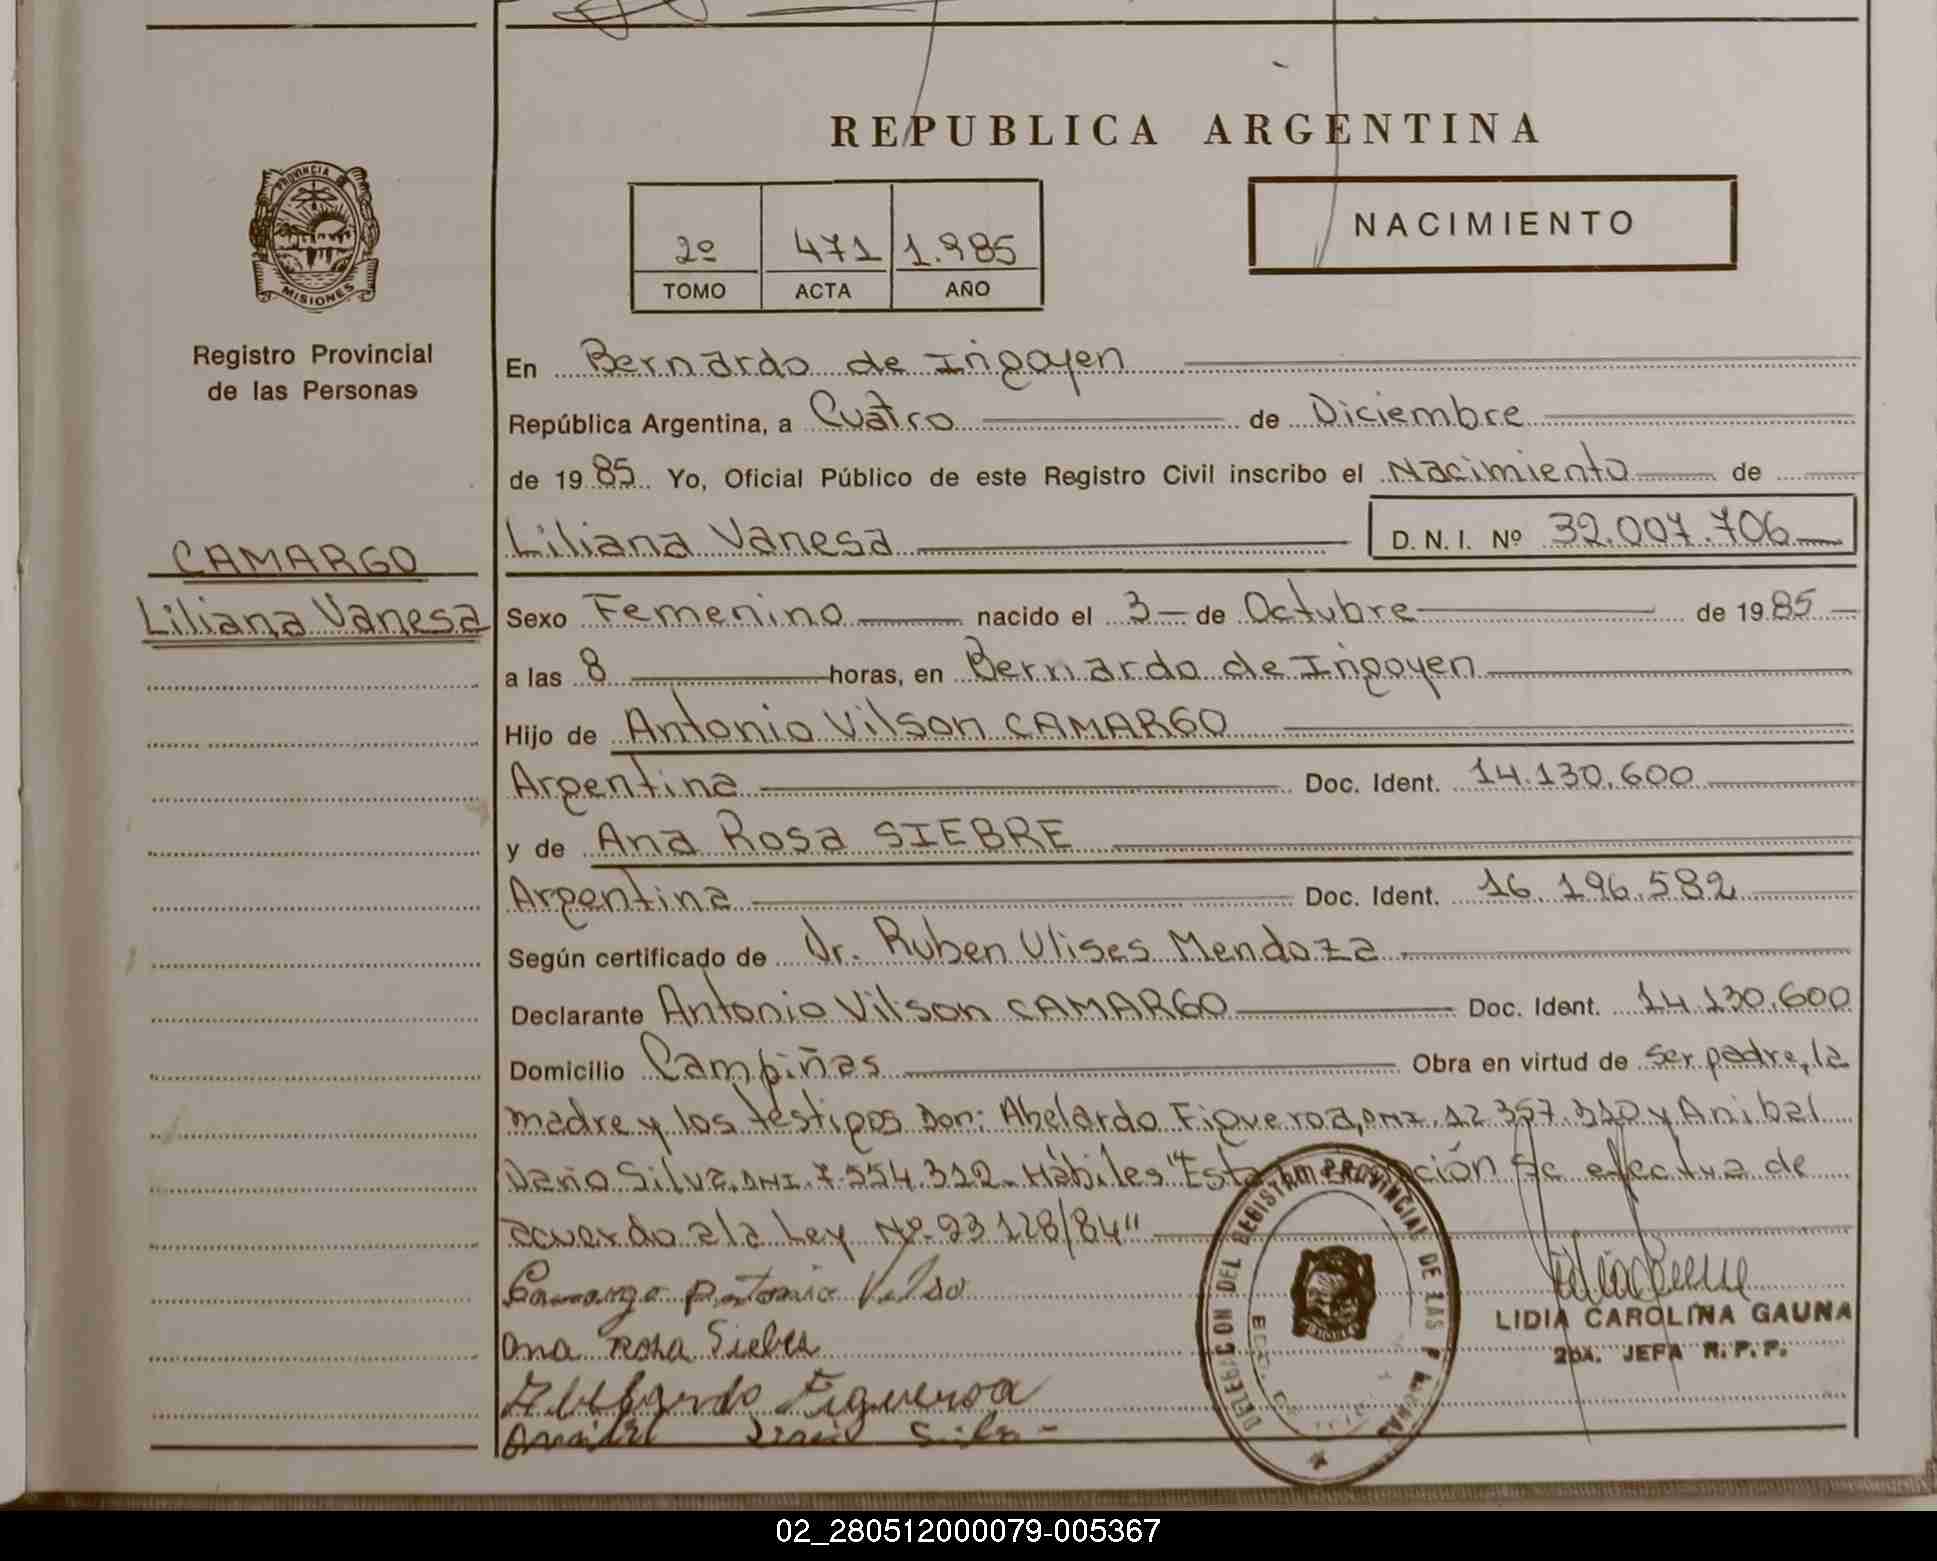 REPUBLICA ARGENTINA
PROVINCIA DE
MISIONES
Registro Provincial
de las Personas
CAMARGO
Liliana Vanesa
2º 471 1.985
TOMO ACTA AÑO
NACIMIENTO
En Bernardo de Irigoyen
República Argentina, a Cuatro de Diciembre
de 1985 Yo, Oficial Público de este Registro Civil inscribo el Nacimiento de
Liliana Vanesa D.N.I. Nº 32.007.706
Sexo Femenino nacido el 3 de Octubre de 1985
a las 8 horas, en Bernardo de Irigoyen
Hijo de Antonio Vilson CAMARGO
Argentina Doc. Ident. 14.130.600
y de Ana Rosa SIEBRE
Argentina Doc. Ident. 16.196.582
Según certificado de Dr. Ruben Ulises Mendoza
Declarante Antonio Vilson CAMARGO Doc. Ident. 14.130.600
Domicilio Campiñas Obra en virtud de ser padre, la
madre y los testigos Don: Abelardo Figueroa, DNI. 12.357.310 y Anibal
Dario Silva, DNI. 7.554.312. Hábiles "Esta se efectua de
acuerdo a la Ley Nº 23.128/84"
Camargo Antonio
Ana Rosa
Figueroa
DELEGACION DEL REGISTRO PROVINCIAL DE LAS
LIDIA CAROLINA GAUNA
2da. JEFA R.P.P.
02_280512000079-005367